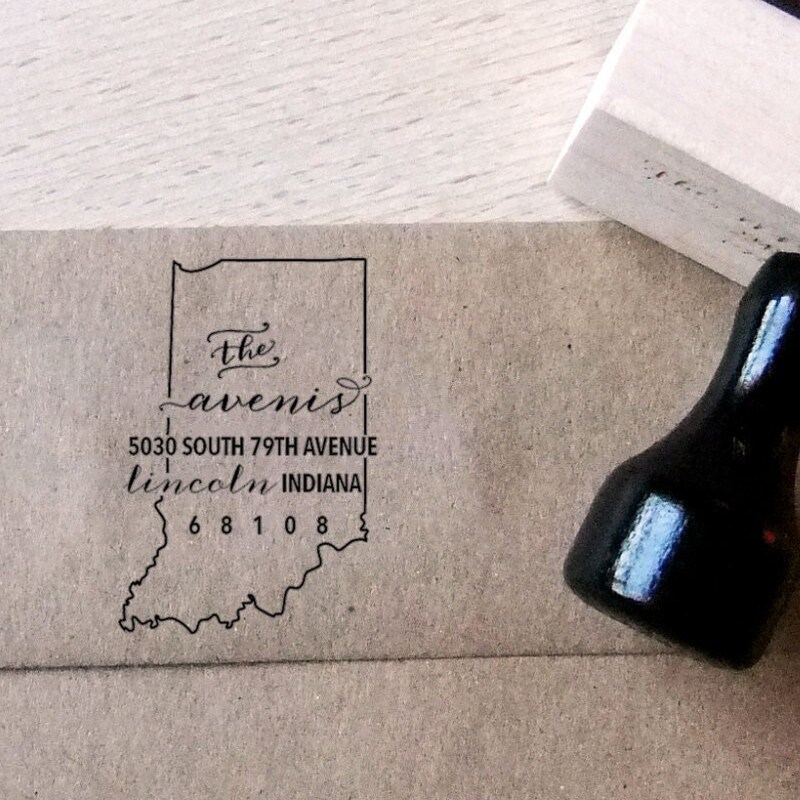 the
avenis
5030 SOUTH 79TH AVENUE
lincoln INDIANA
68108